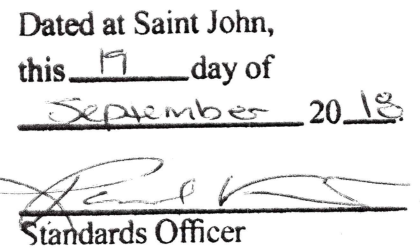 Dated at Saint John,
this 19 day of
September 2018.
Standards Officer